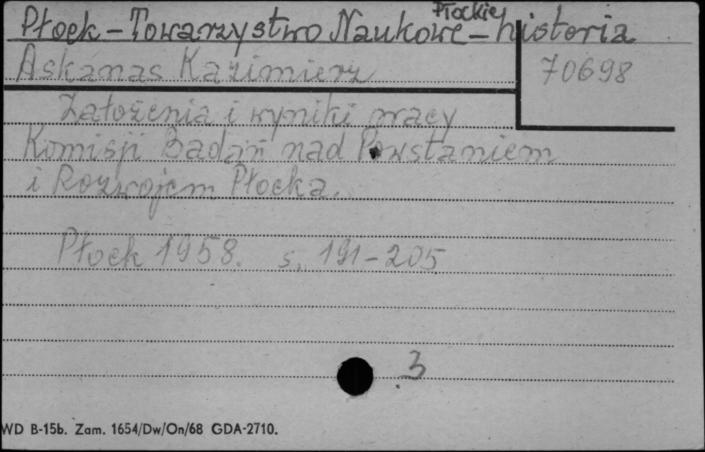 Płock – Towarzystwo Naukowe Płockie – historia
Askanas Kazimierz
70698
Założenia i wyniki pracy
Komisji Badań nad Powstaniem
i Rozwojem Płocka.
Płock 1958. s. 191-205
3
WD B-15b. Zam. 1654/Dw/On/68 GDA-2710.